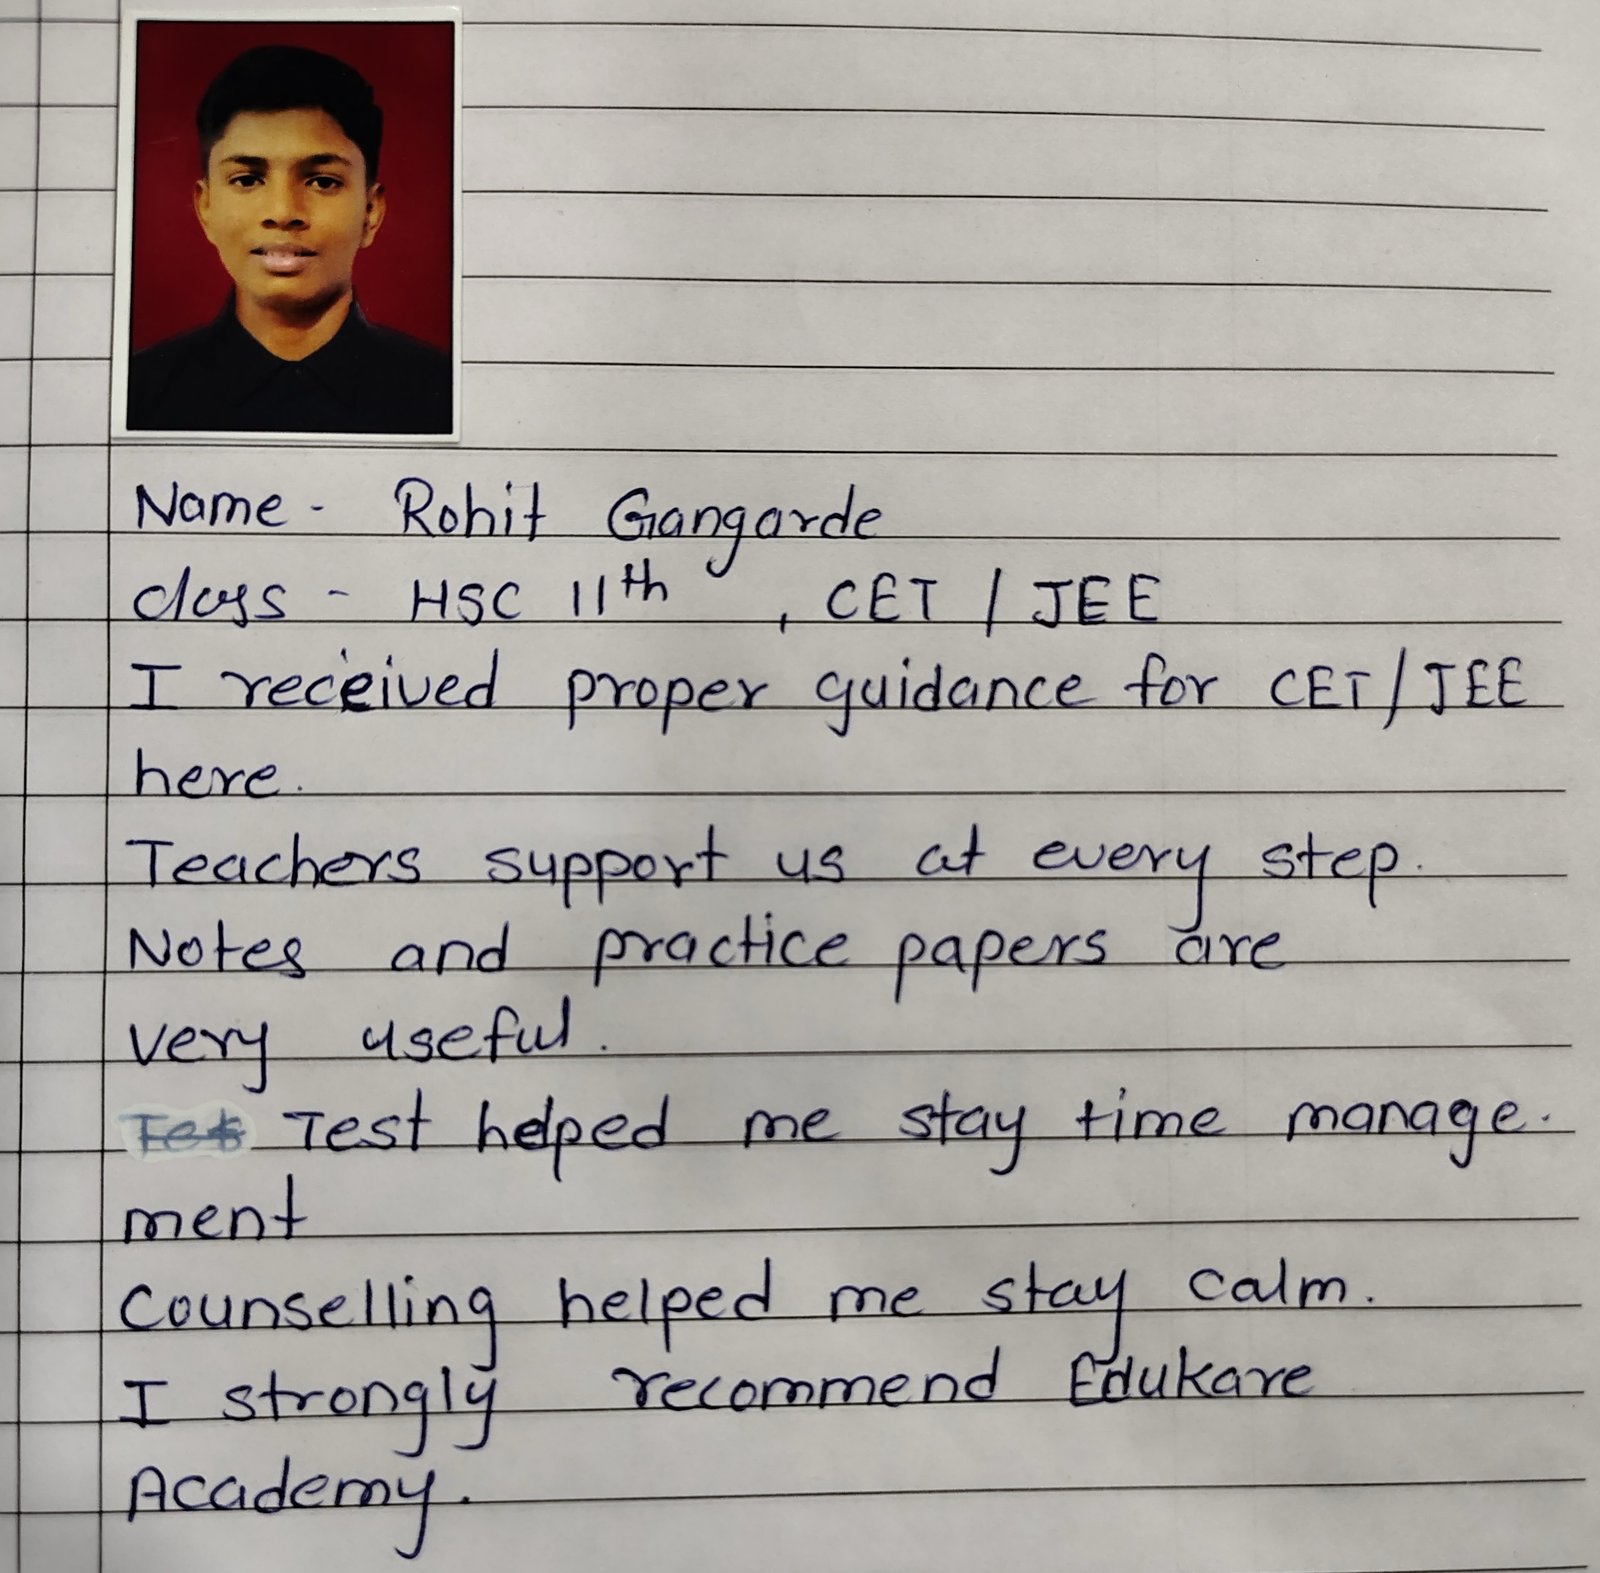 Name - Rohit Gangarde
class - HSC 11th , CET / JEE
I received proper guidance for CET/JEE
here.
Teachers support us at every step.
Notes and practice papers are
very useful.
Test helped me stay time manage-
ment
Counselling helped me stay calm.
I strongly recommend Edukare
Academy.